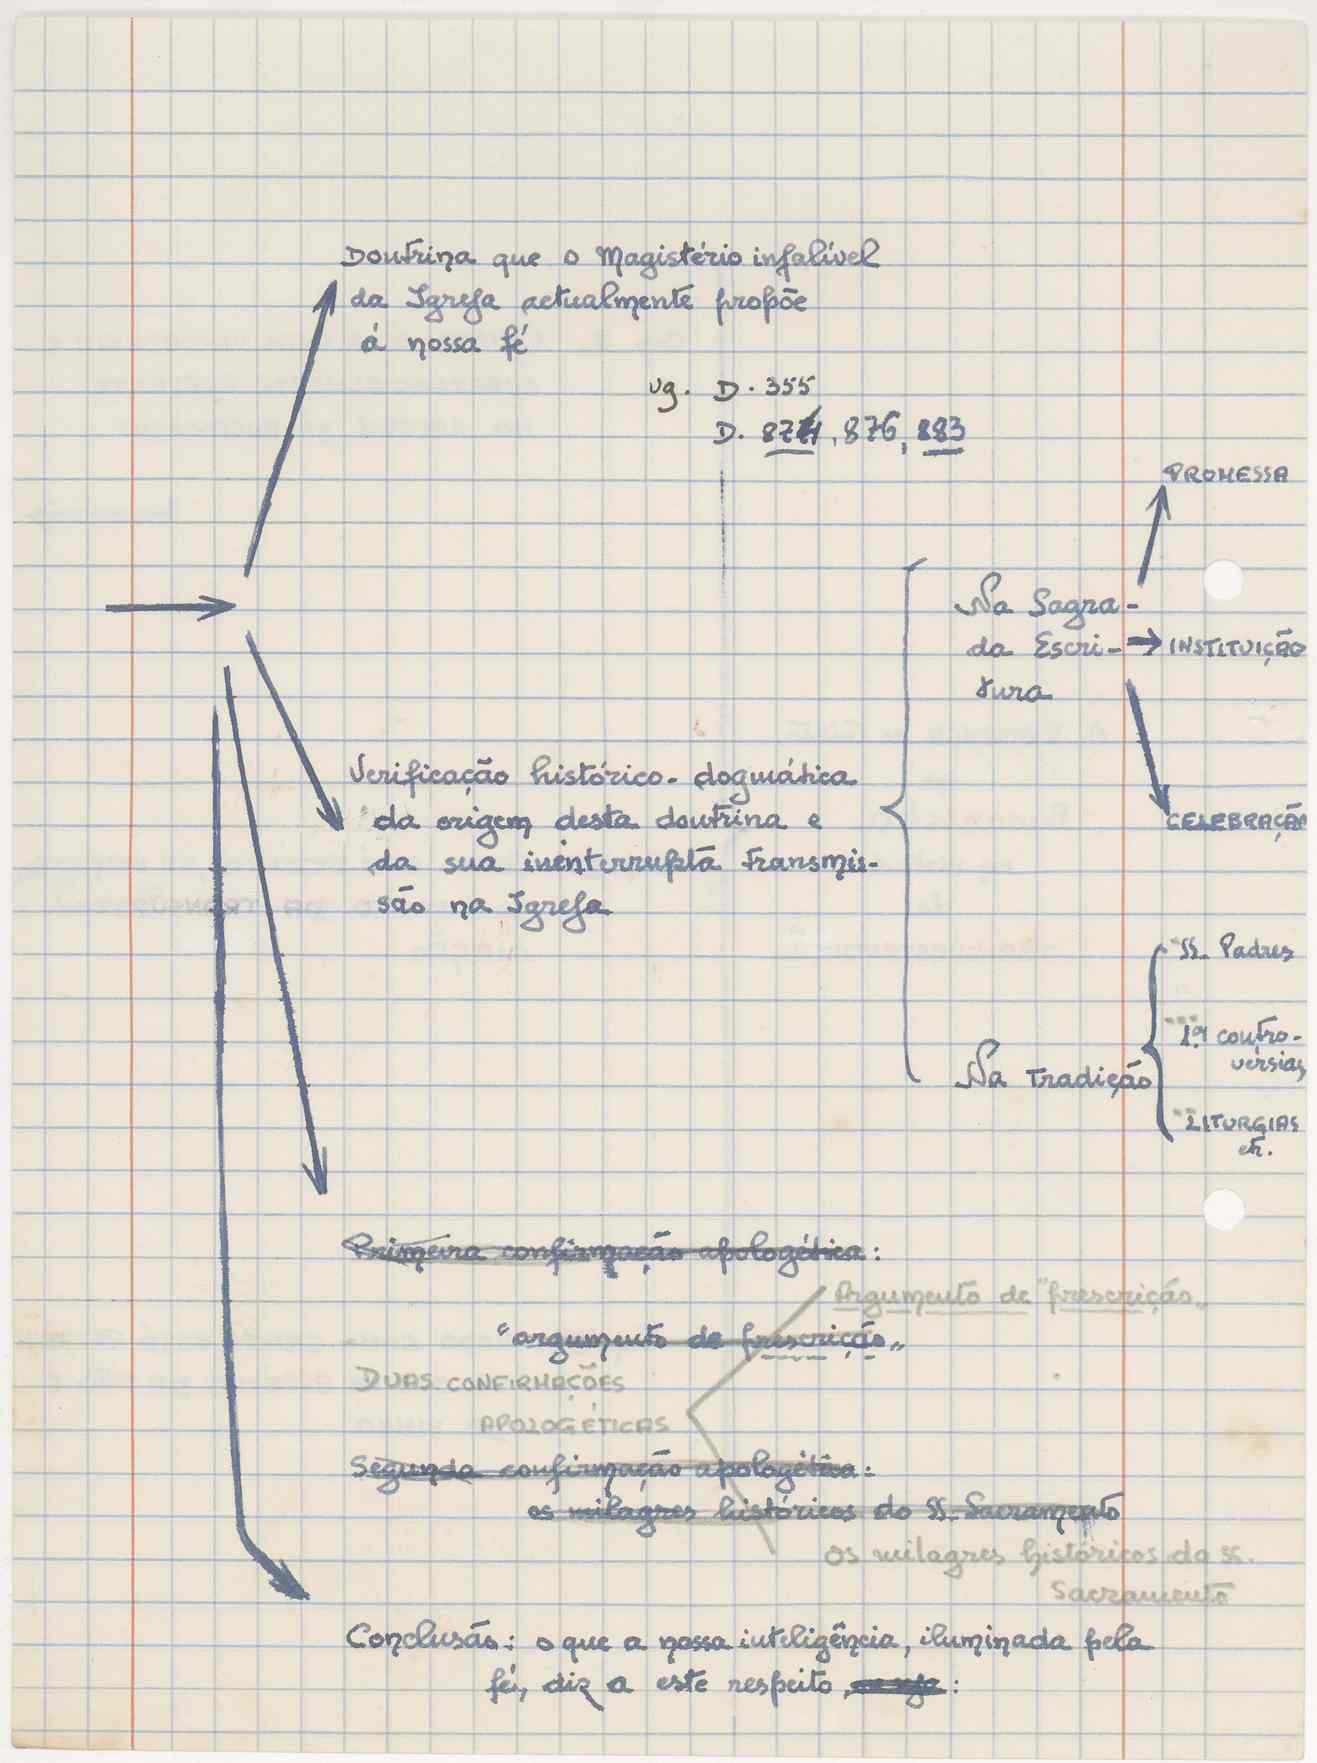 Doutrina que o Magistério infalível
da Igreja actualmente propõe
à nossa fé
vg. D. 355
D. 874, 876, 883
PROMESSA
Na Sagra-
da Escri-
tura
INSTITUIÇÃO
CELEBRAÇÃO
Verificação histórico-dogmática
da origem desta doutrina e
da sua ininterrupta transmis-
são na Igreja
SS. Padres
1ªˢ contro-
vérsias
Na Tradição
LITURGIAS
etc.
Primeira confirmação apologética:
Argumento de "prescrição"
"argumento de prescrição"
DUAS CONFIRMAÇÕES
APOLOGÉTICAS
Segunda confirmação apologética:
os milagres históricos do SS. Sacramento
Os milagres históricos do SS.
Sacramento
Conclusão: o que a nossa inteligência, iluminada pela
fé, diz a este respeito :